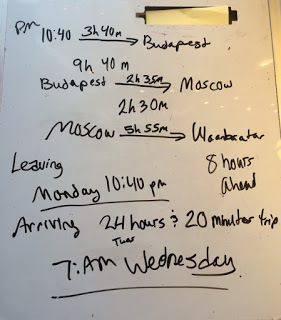 PM 10:40 3h 40m Budapest
9h 40m
Budapest 2h 35m Moscow
2h 30m
Moscow 5h 55m
Leaving 8 hours
ahead
Monday 10:40 pm
Arriving 24 hours & 20 minutes trip
Tues
7: AM Wednesday